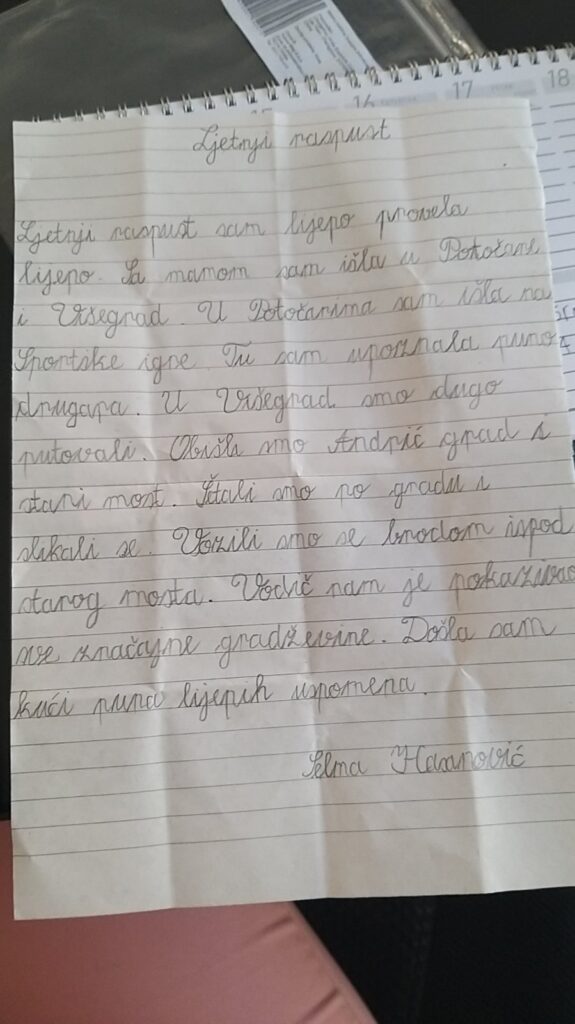 16
17
18
Ljetnji raspust
Ljetnji raspust sam lijepo provela
lijepo. Sa mamom sam išla u Potočane
i Višegrad. U Potočanima sam išla na
Sportske igre. Tu sam upoznala puno
drugara. U Višegrad smo dugo
putovali. Obišli smo Andrić grad i
stari most. Šetali smo po gradu i
slikali se. Vozili smo se brodom ispod
starog mosta. Vodič nam je pokazivao
sve značajne gradževine. Došla sam
kući puna lijepih uspomena.
Selma Hasanović